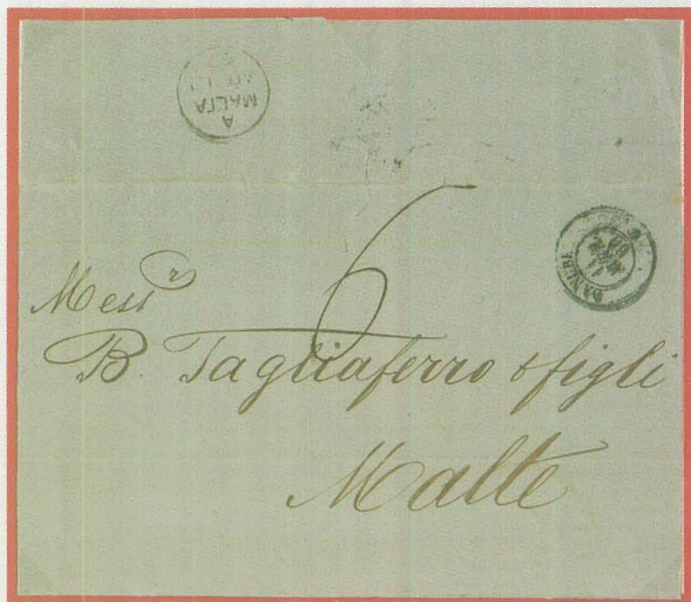 A
MALTA
AP
DANUBE
60
6
Mess rs
B. Tagliaferro & figli
Malte